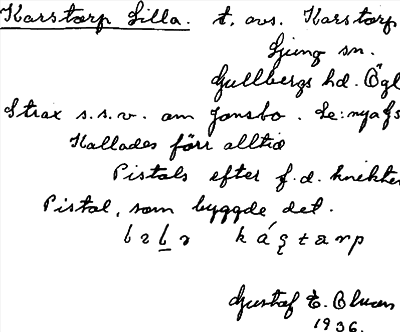 Karstorp Lilla. t. avs. Karstorp
Ljung sn.
Gullbergs hd. Ögl
Strax s.s.v. om Jonsbo. Se: nya fs
Kallades förr alltid
Pistols efter f.d. knekten
Pistol, som byggde det.
Gustaf E. Olsson
1936.